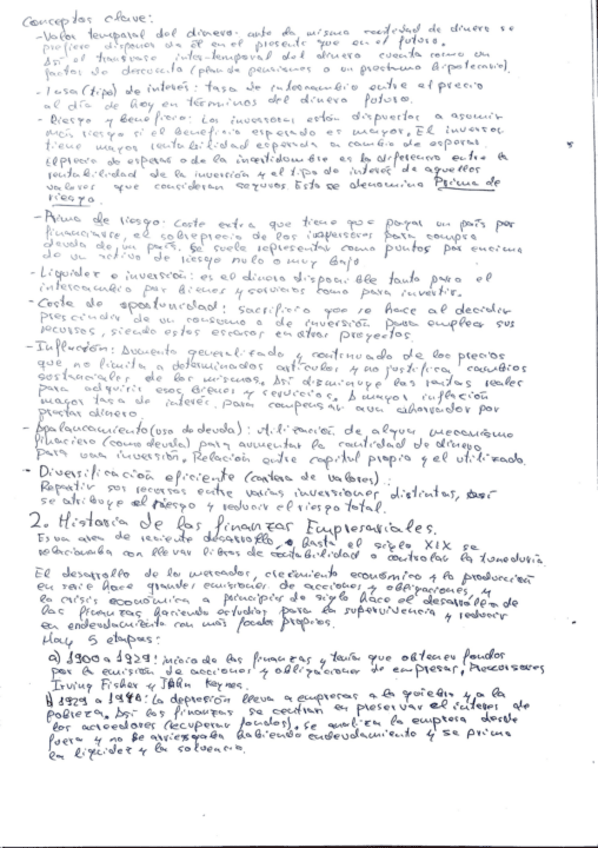 Conceptos clave:
- Valor temporal del dinero: ante la misma cantidad de dinero se
prefiere disponer de él en el presente que en el futuro.
Así el trasvase inter-temporal del dinero cuenta como un
factor de descuento (plan de pensiones o un prestamo hipotecario).
- Tasa (tipo) de interés: tasa de intercambio entre el precio
al día de hoy en términos del dinero futuro.
- Riesgo y beneficio: Los inversores están dispuestos a asumir
más riesgo si el beneficio esperado es mayor. El inversor
tiene mayor rentabilidad esperada a cambio de esperar.
El precio de esperar o de la incertidumbre es la diferencia entre la
rentabilidad de la inversión y el tipo de interés de aquellos
valores que consideran seguros. Esto se denomina Prima de
riesgo.
- Prima de riesgo: Coste extra que tiene que pagar un país por
financiarse, el sobreprecio de los inversores para compra
deuda de un país. Se suele representar como puntos por encima
de un activo de riesgo nulo o muy bajo
- Liquidez e inversión: es el dinero disponible tanto para el
intercambio por bienes y servicios como para invertir.
- Coste de oportunidad: sacrificio que se hace al decidir
prescindir de un consumo o de inversión para emplear sus
recursos, siendo estos escasos en otros proyectos.
- Inflación: Aumento generalizado y continuado de los precios
que no limita a determinados artículos y no justifica cambios
sustanciales de los mismos. Así disminuye las rentas reales
para adquirir esos bienes y servicios. A mayor inflación
mayor tasa de interés, para compensar a un ahorrador por
prestar dinero.
- Apalancamiento (uso de deuda): utilización de algun mecanismo
financiero (como deuda) para aumentar la cantidad de dinero
para una inversión. Relación entre capital propio y el utilizado.
- Diversificación eficiente (cartera de valores):
Repartir sus recursos entre varias inversiones distintas, así
se atribuye el riesgo y reducir el riesgo total.
2. Historia de las finanzas Empresariales.
Es una area de reciente desarrollo, hasta el siglo XIX se
relacionaba con llevar libros de contabilidad o controlar la tesorería.
El desarrollo de los mercados, crecimiento económico y la producción
en serie hace grandes emisiones de acciones y obligaciones, y
la crisis económica a principios de siglo hace el desarrollo de
las finanzas haciendo estudios para la supervivencia y reducir
en endeudamiento con más fondos propios.
Hay 5 etapas:
a) 1900 a 1929: inicio de las finanzas y tenía que obtener fondos
por la emisión de acciones y obligaciones de empresas, Precursores
Irving Fisher y John Keynes.
b) 1929 a 1940: La depresión lleva a empresas a la quiebra y a la
pobreza. Así las finanzas se centran en preservar el interés de
los acreedores (recuperar fondos), se analiza la empresa desde
fuera y no se arriesgaba habiendo endeudamiento y se prima
la liquidez y la solvencia.